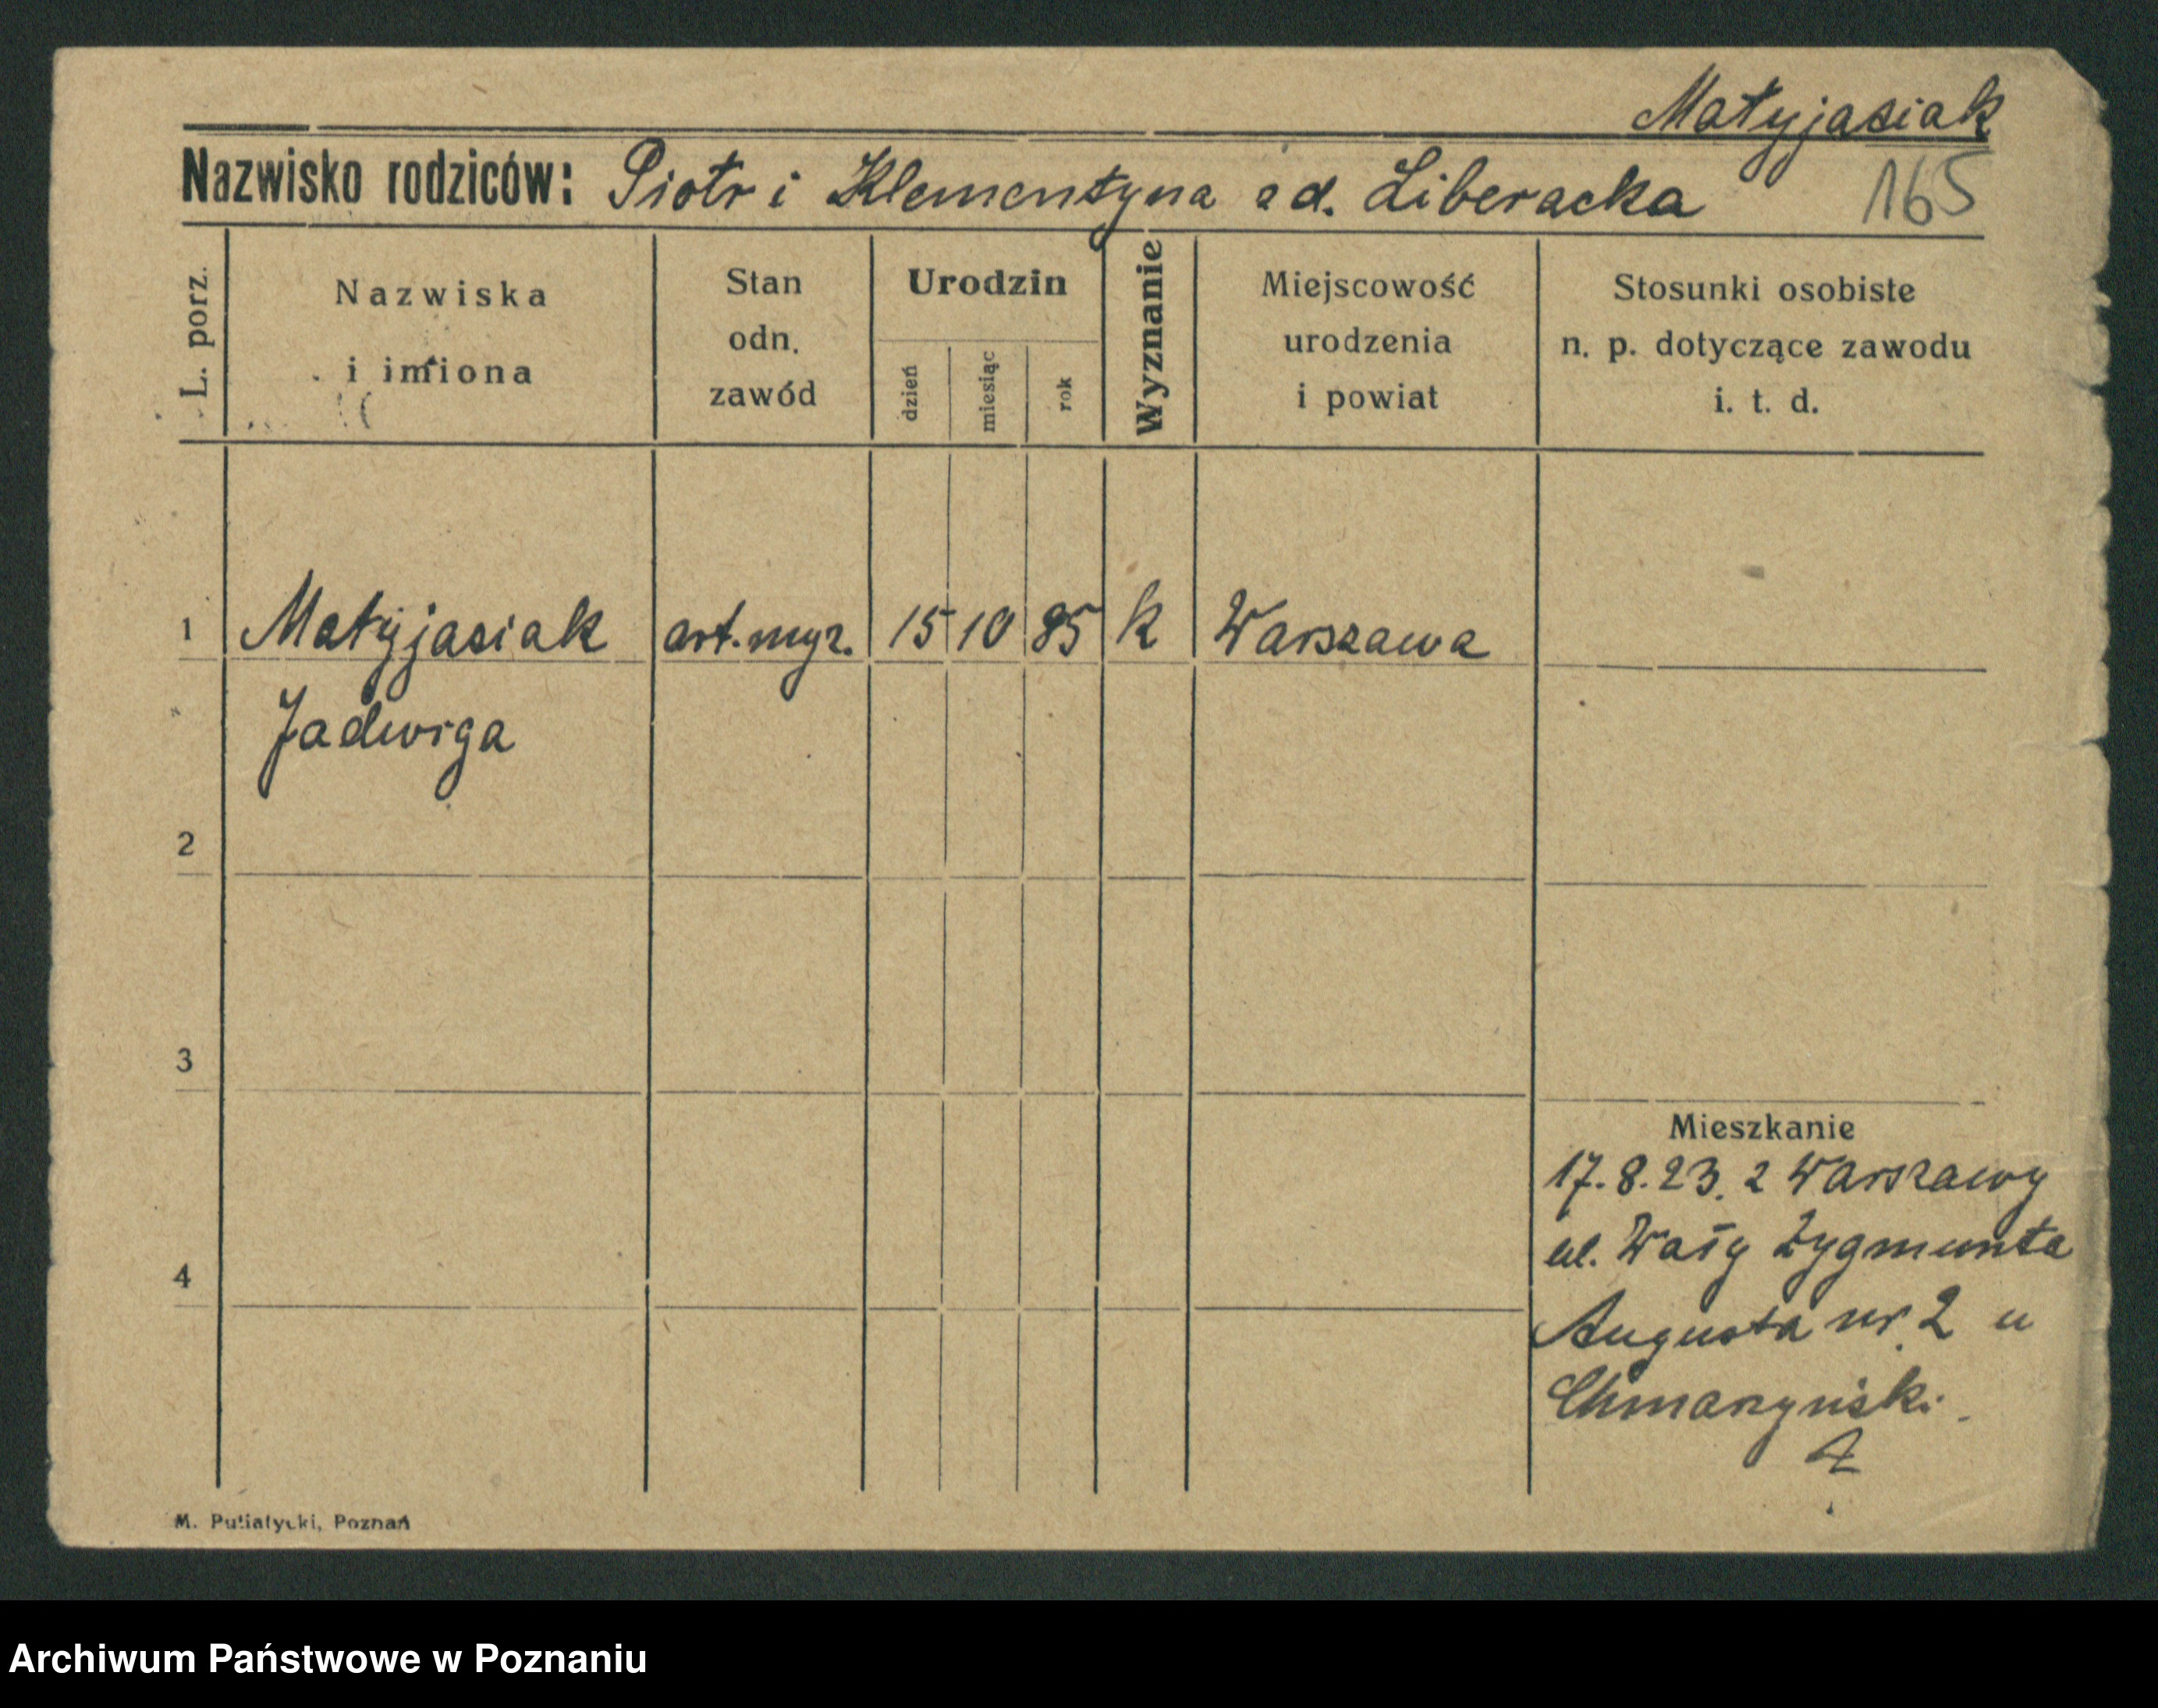 Matyjasiak
Nazwisko rodziców: Piotr i Klementyna zd. Liberacka 165
L. porz.
Nazwiska
i imiona
Stan
odn.
zawód
Urodzin
dzień
miesiąc
rok
Wyznanie
Miejscowość
urodzenia
i powiat
Stosunki osobiste
n. p. dotyczące zawodu
i. t. d.
1 Matyjasiak art. 15 10 85 k Warszawa
Jadwiga
2
3
4
Mieszkanie
17.8.23. z Warszawy
ul. Wały Zygmunta
Augusta nr. 2 u
M. Putiatycki, Poznań
Archiwum Państwowe w Poznaniu